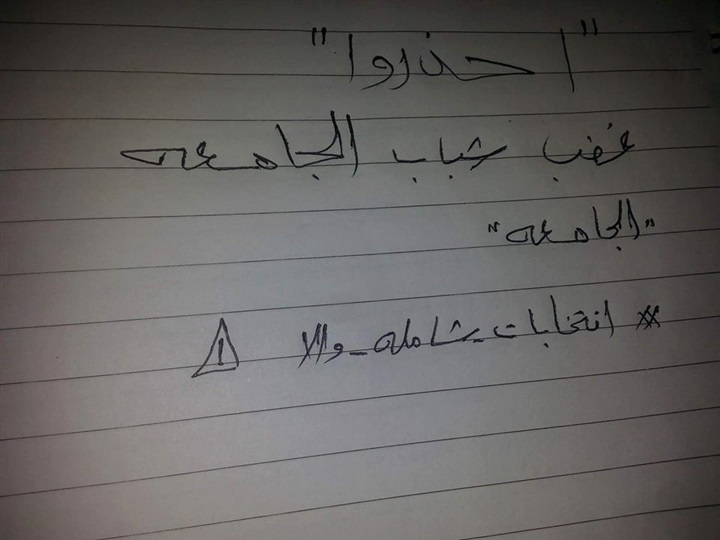 "احذروا"
غضب شباب الجامعه
"الجامعه"
# انتخابات_شامله_والا ⚠